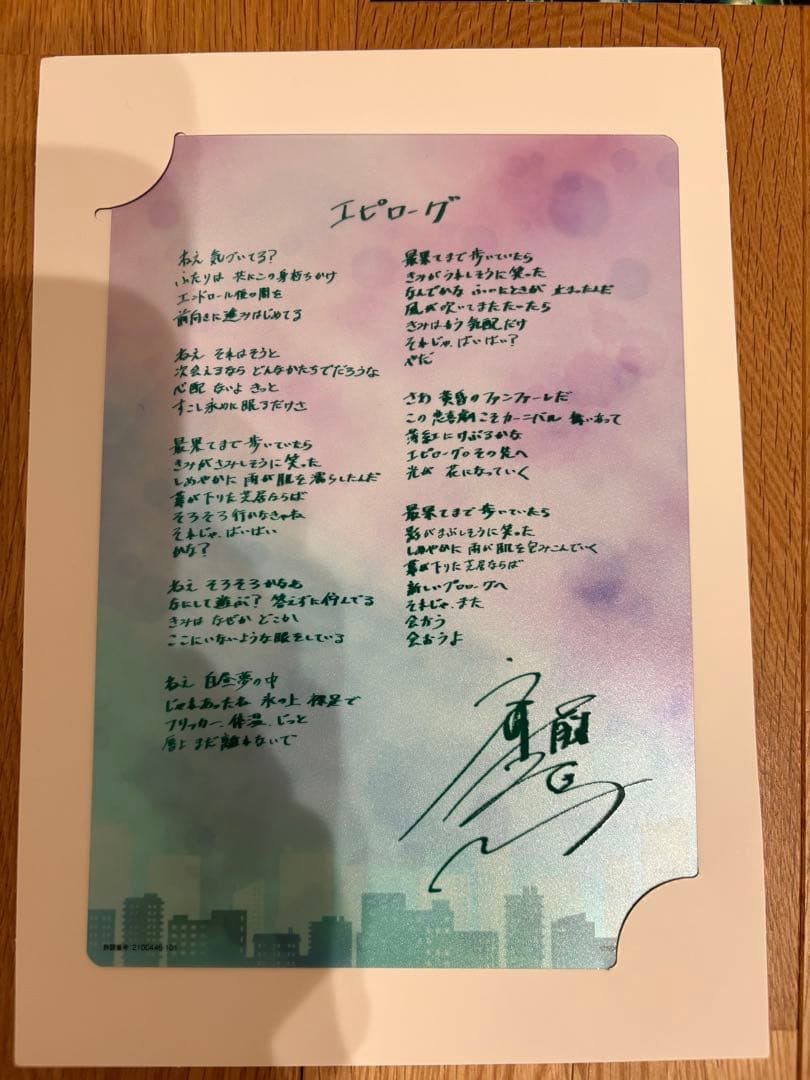 エピローグ
ねえ 気づいてる?
ふたりは 共にこの身朽ちかけ
エンドロール後の闇を
前向きに進みはじめてる
ねえ それはそうと
次会えるなら どんなかたちでだろうな
心配 ないよ きっと
すこし永めに眠るだけさ
最果てまで歩いていたら
きみがさみしそうに笑った
しめやかに 雨が肌を濡らしたんだ
幕が下りた芝居ならば
そろそろ行かなきゃね
それじゃ、ばいばい
かな?
ねえ そろそろかなあ
なにして遊ぶ? 答えずに佇んでる
きみは なぜか どこか
ここにいないような眼をしている
ねえ 白昼夢の中
じゃれあったね 氷の上 裸足で
フリッカー、体温、じっと
唇よ まだ離れないで
最果てまで歩いていたら
きみがうれしそうに笑った
なんでかな ふいにときが 止まったんだ
風が吹いてまたたいたら
きみはもう 気配だけ
それじゃ、ばいばい?
やだ
さあ 黄昏のファンファーレだ
この 悲喜劇こそカーニバル 舞いあって
薄紅にけぶるかな
エピローグ。その先へ
光が 花になっていく
最果てまで歩いていたら
影がまぶしそうに笑った
しめやかに 雨が肌を包みこんでいく
幕が下りた芝居ならば
新しいプロローグへ
それじゃ、また
会おう
会おうよ
許諾番号:2100445-101